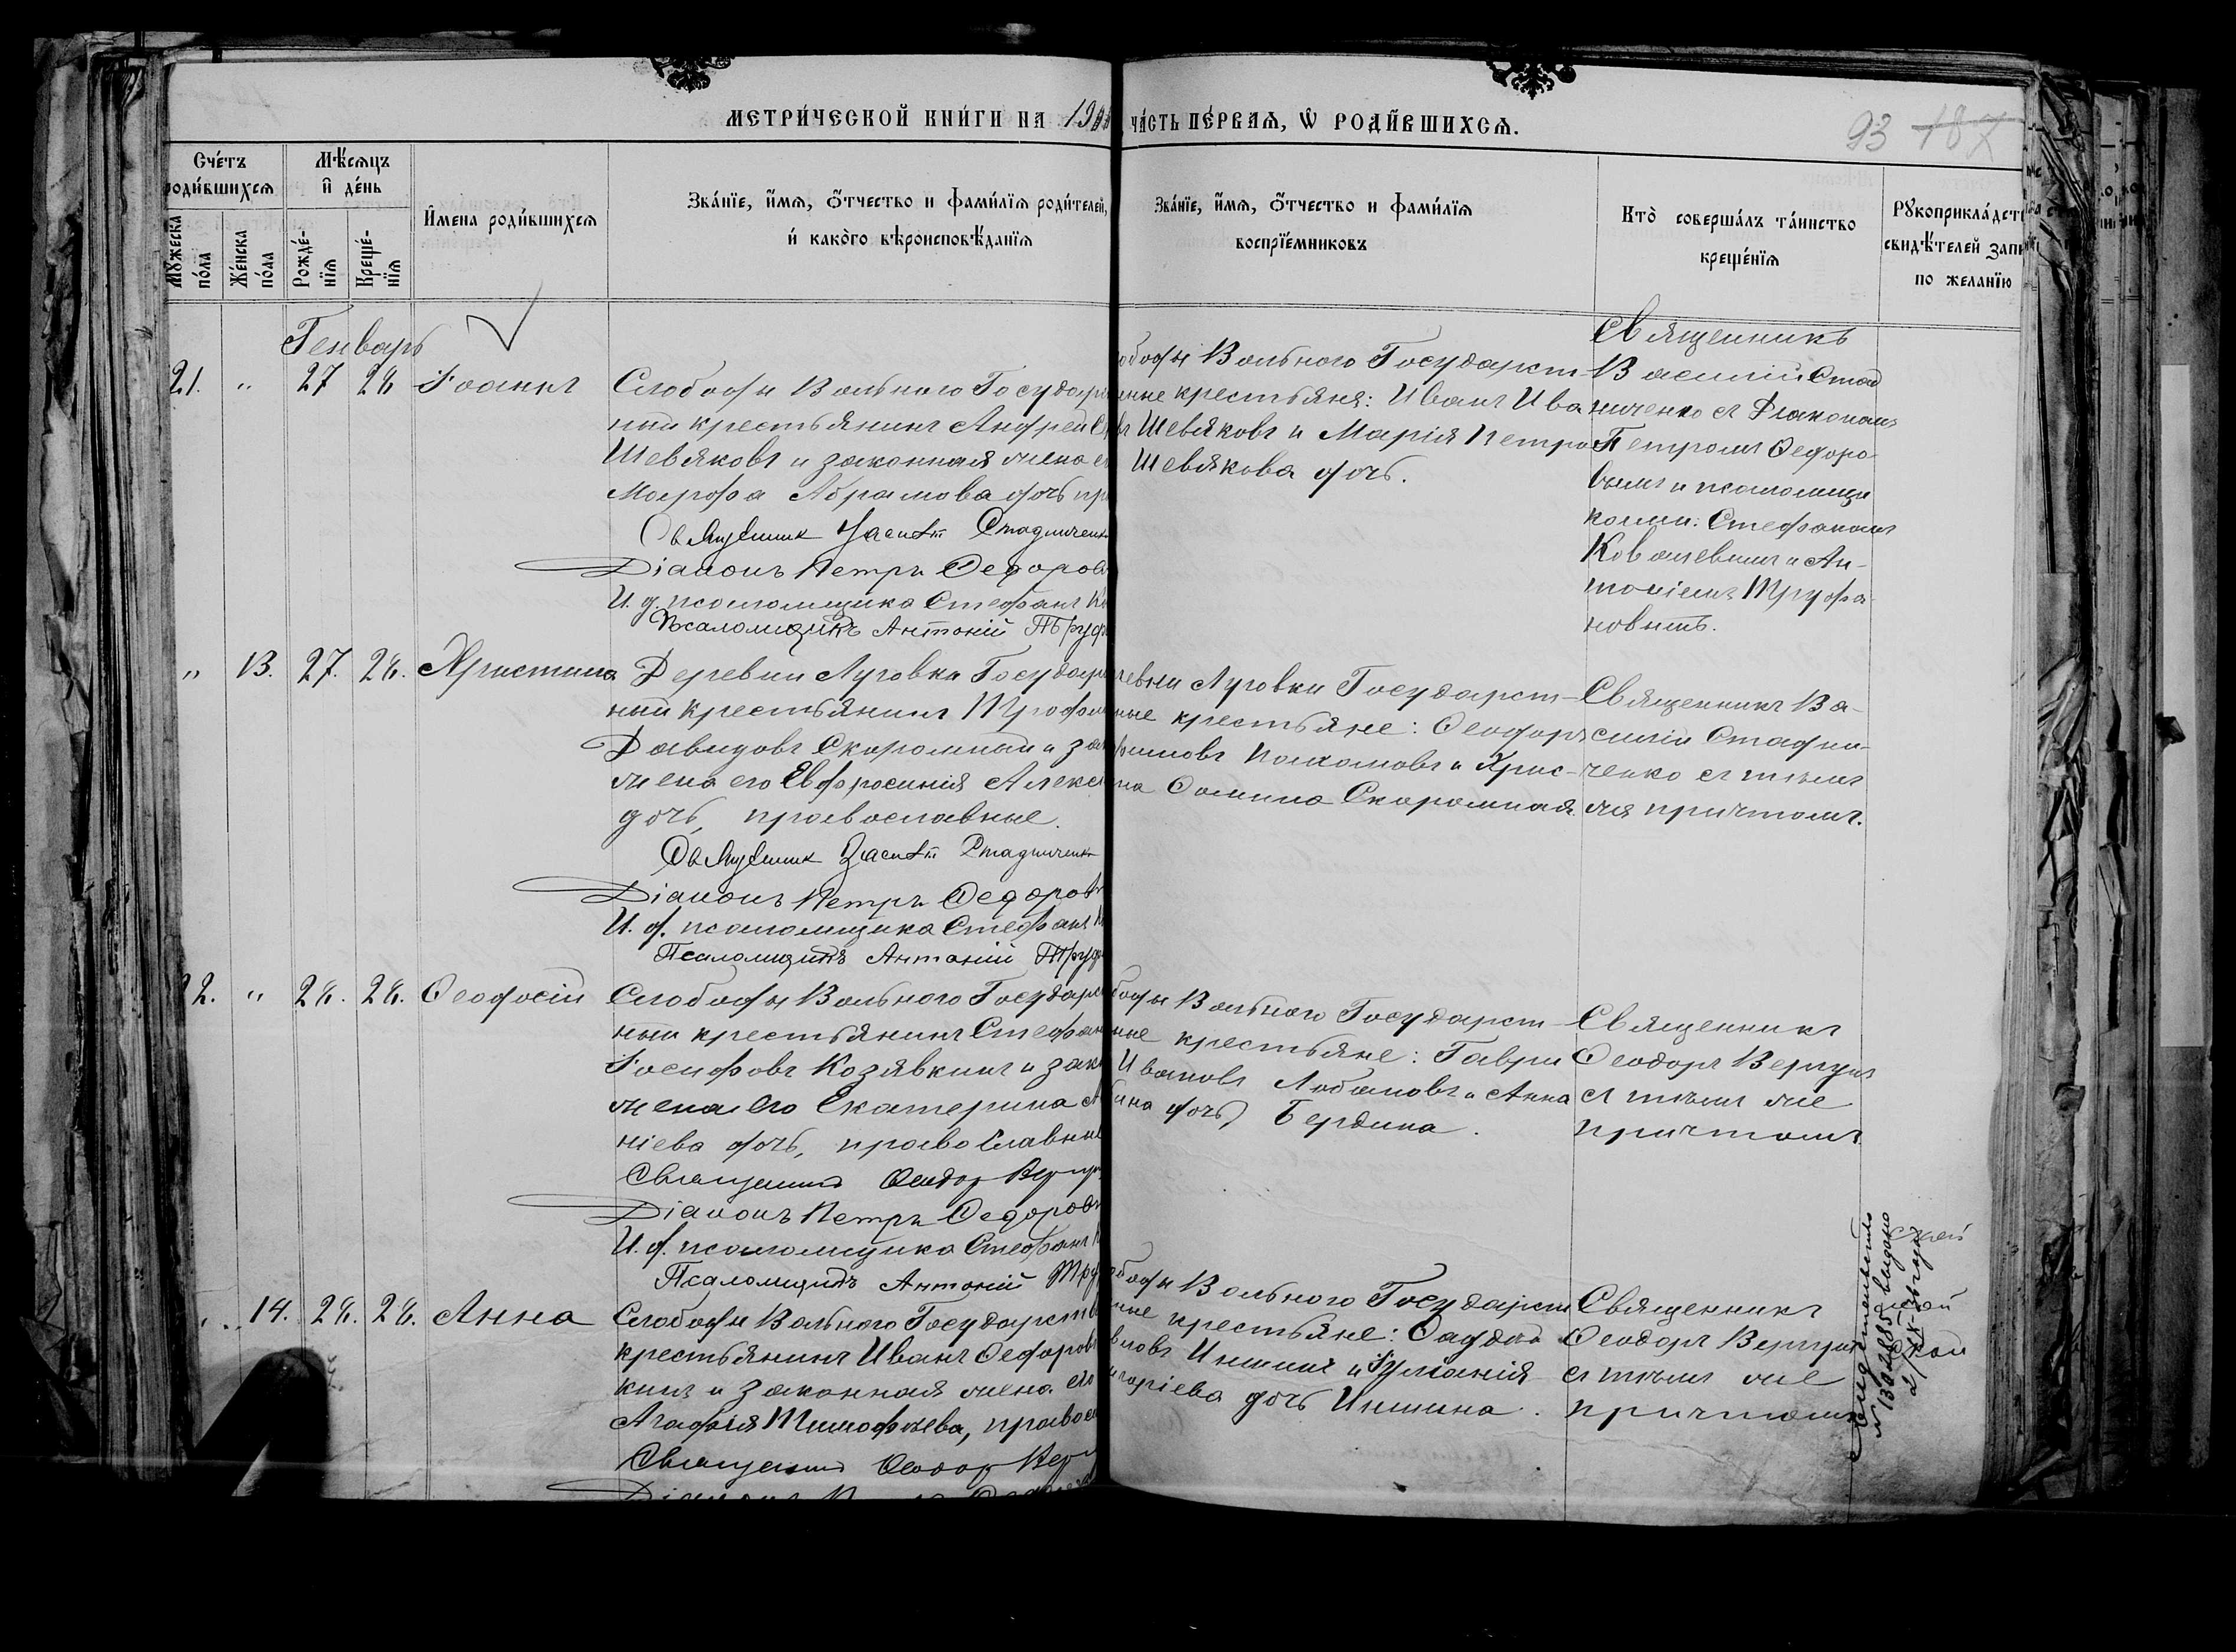 МЕТРИ́ЧЕСКОЙ КНИ́ГИ НА 19
ЧА́СТЬ ПЕ́РВАЯ, Ѿ РОДИ́ВШИХСЯ.
93 187
Сче́тъ
роди́вшихся
Мѣ́сяцъ
и҆ де́нь
Мꙋ́жеска
по́ла
Же́нска
по́ла
Рожде́-
нїя
Креще́-
нїя
И҆мена роди́вшихся
Зва́нїе, и҆́мя, ѻ҆́тчество и фами́лїя роди́телей,
и҆ како́гѡ вѣроисповѣ́данїя
Зва́нїе, и҆́мя, ѻ҆́тчество и фами́лїя
воспрїе́мниковъ
Кто̀ соверша́лъ та́инство
креще́нїя
Рꙋкоприкла́дст
свидѣ́телей запи
по жела́нїю
Генварь
21. " 27 28 Іоаннъ
Слободы Вольного Государс
ный крестьянинъ Андрей С
Шевяковъ и законная жена е
Марфа Абрамова дочь пр
Священник Василій Стадниченк
Діаконъ Петръ Ѳедоров
И. д. псаломщика Стефанъ К
Псаломщикъ Антоній Труф
ободы Вольного Государст-
нные крестьяня: Иванъ Ива
въ Шевяковъ и Марія Петро
Шевякова дочь.
Священникъ
Василій Стад
ниченко съ Діакономъ
Петромъ Ѳедоро-
вымъ и псаломщи
ками: Стефаномъ
Ковалевымъ и Ан-
тоніемъ Труфа-
новымъ.
" 13. 27. 28. Христина
Деревни Луговки Государ
ный крестьянинъ Трофим
Давидовъ Скоромный и за
жена его Евфросинія Алекс
дочь, православные.
Священник Василій Стадниченк
Діаконъ Петръ Ѳедоров
И. д. псаломщика Стефанъ К
Псаломщикъ Антоній Труф
ревни Луговки Государст-
ные крестьяне: Ѳеодоръ
фимовъ Пахомовъ и Хрис-
на Ѳомина Скоромная.
Священникъ Ва-
силій Стадни-
ченко съ тѣмъ
же причтомъ.
22. " 28. 28. Ѳеодосій
Слободы Вольного Государс
ный крестьянинъ Стефан
Іосифовъ Козявкинъ и зак
жена его Екатерина А
ніева дочь, православны
Священник Ѳеодор Вергун
Діаконъ Петръ Ѳедоров
И. д. псаломщика Стефанъ К
Псаломщикъ Антоній Тру
боды Вольного Государст-
ные крестьяне: Гаври
Ивановъ Лобановъ и Анна
ина дочь Бердина.
Священникъ
Ѳеодоръ Вергунъ
съ тѣмъ же
причтомъ.
" 14. 28. 28. Анна
Слободы Вольного Государств
крестьянинъ Иванъ Ѳедоровъ
кинъ и законная жена его
Агафія Тимофѣева, правос
Священник Ѳеодор Верг
Діаконъ Петръ Ѳедоров
ободы Вольного Государст
ные крестьяне:
вловъ Иншинъ и Іуліанія
игоріева дочь Иншина.
Священникъ
Ѳеодоръ Вергунъ
съ тѣмъ же
причтомъ